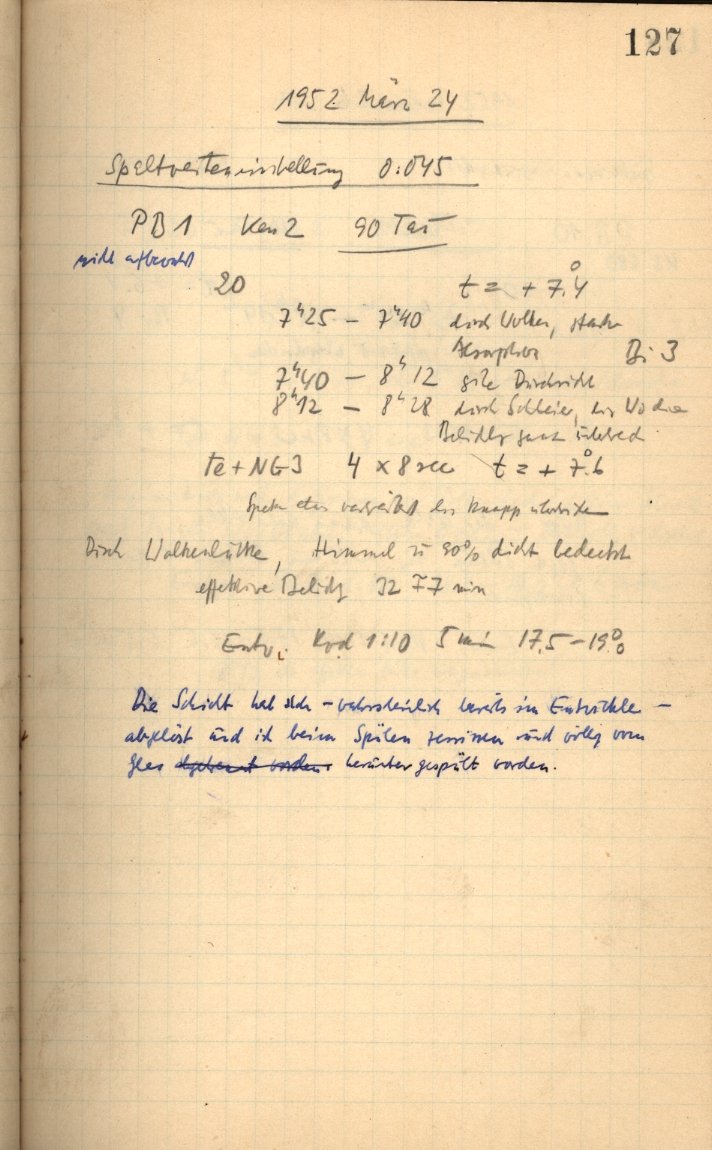 127
1952 März 24
Spaltweiteneinstellung 0.045
PB1 Ken2 90 Tau
nicht aufbewahrt
20 t = + 7.°4
7ʰ25 – 7ʰ40 durch Wolken, starke
Absorption Bi 3
7ʰ40 – 8ʰ12 gute Durchsicht
8ʰ12 – 8ʰ28 durch Schleier,
Belichtg ganz
Fe+NG3 4 x 8 sec t = + 7.°6
Spektr etwas verbreitert
Durch Wolkenlücke, Himmel zu 90% dicht bedeckt
effektive Belichtg 32 min
Entw. Rod 1:10 5 min 17.5–19.°0
Die Schicht hat sich – wahrscheinlich bereits im Entwickler –
abgelöst und ist beim Spülen zerrissen und völlig vom
Glas herunter gespült worden.